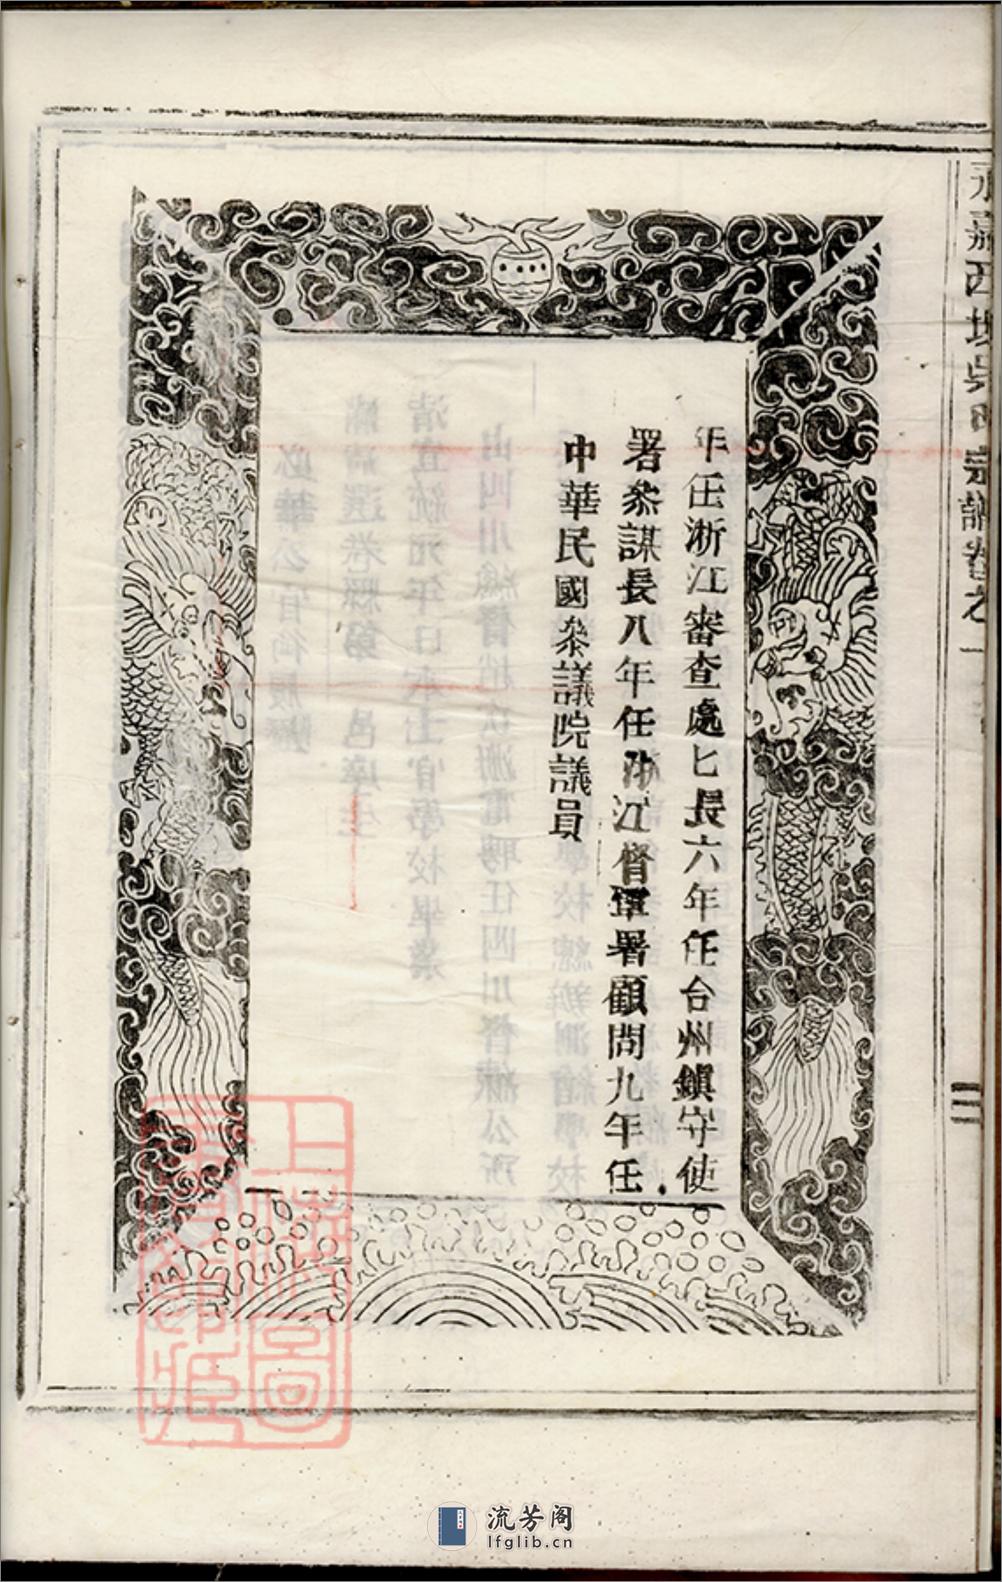 永嘉西垟吳氏宗譜卷之一
年任浙江審查處匕長六年任台州鎮守使
署叅謀長八年任浙江督軍署顧問九年任
中華民國叅議院議員
上海圖書館藏
流芳阁
lfglib.cn